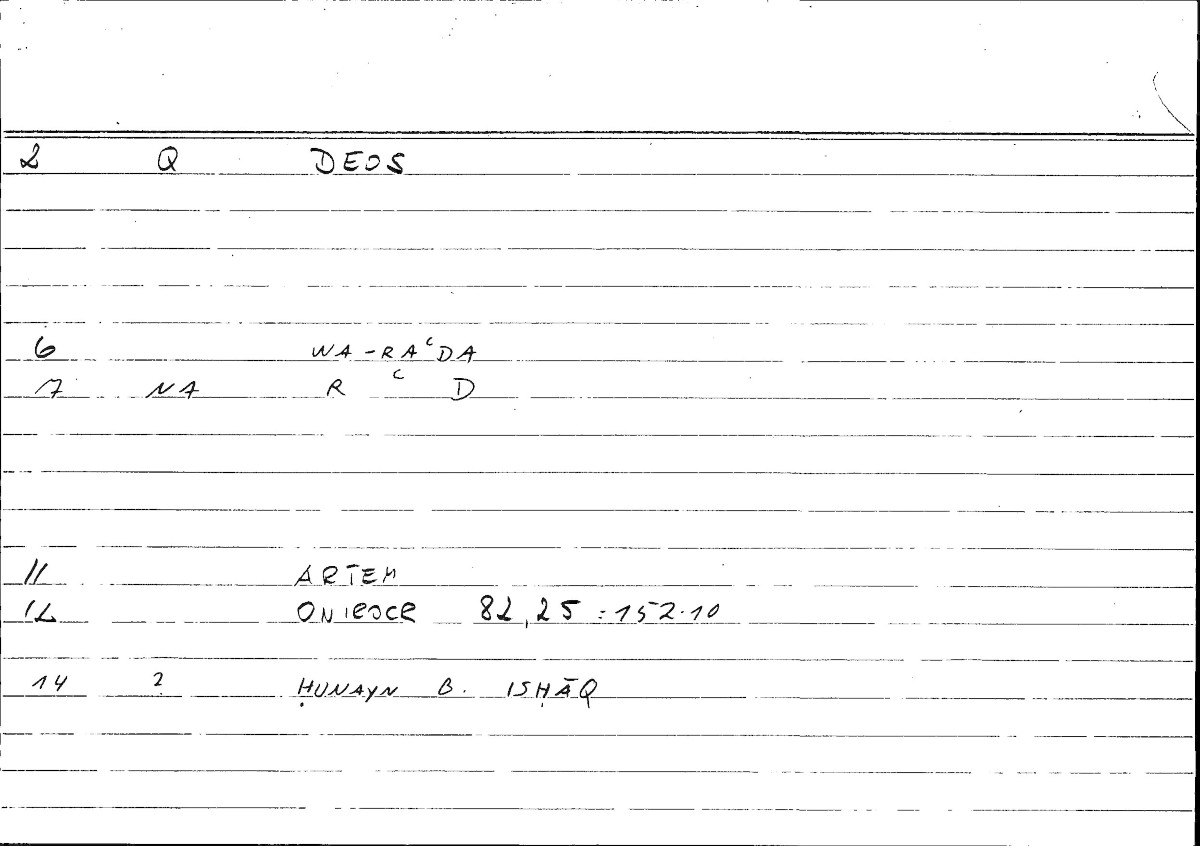 2 Q DEOS
6 WA-RAʿDA
7 NA R ʿ D
11 ARTEM
12 ONIROCR 82,25 = 152.10
14 2 ḤUNAYN B. ISḤĀQ